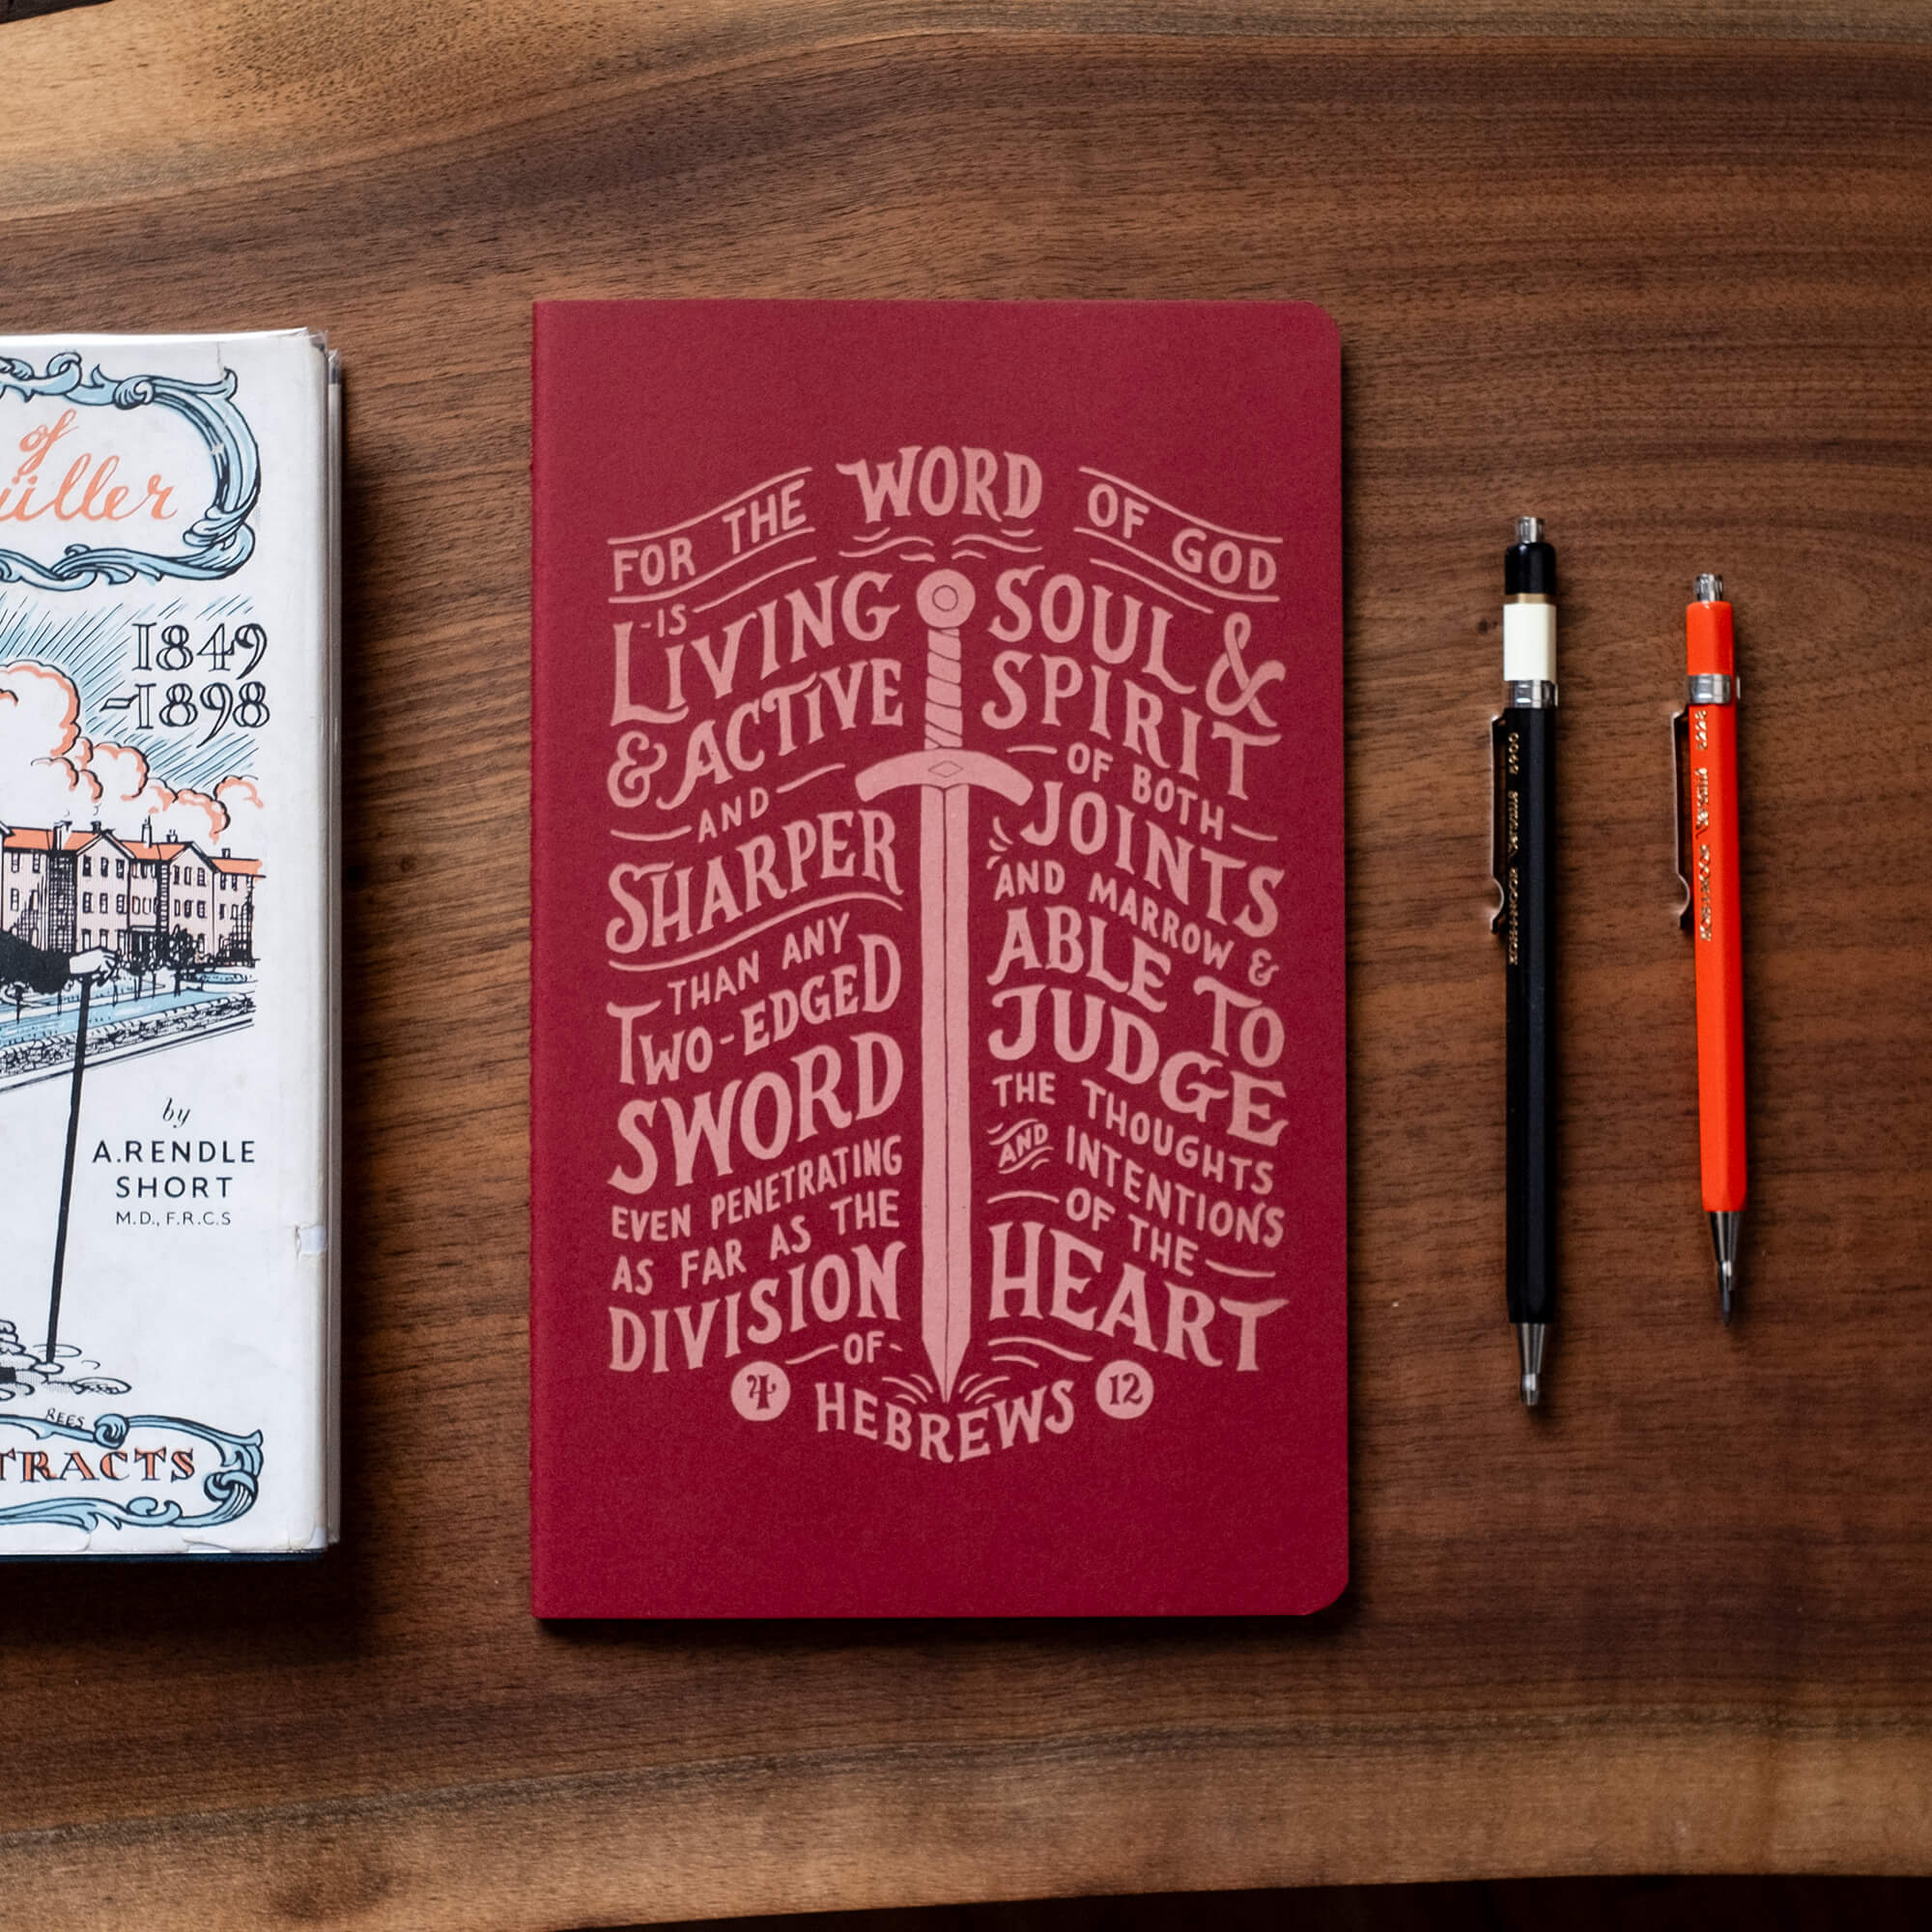 of
üller
1849
-1898
by
A. RENDLE
SHORT
M.D., F.R.C.S
REES
TRACTS
FOR THE WORD OF GOD
-IS-
LIVING
& ACTIVE
AND
SHARPER
THAN ANY
TWO-EDGED
SWORD
EVEN PENETRATING
AS FAR AS THE
DIVISION
-OF-
SOUL &
SPIRIT
OF BOTH
JOINTS
AND MARROW &
ABLE TO
JUDGE
THE THOUGHTS
AND INTENTIONS
OF THE
HEART
4 HEBREWS 12
KOH-I-NOOR
KOH-I-NOOR